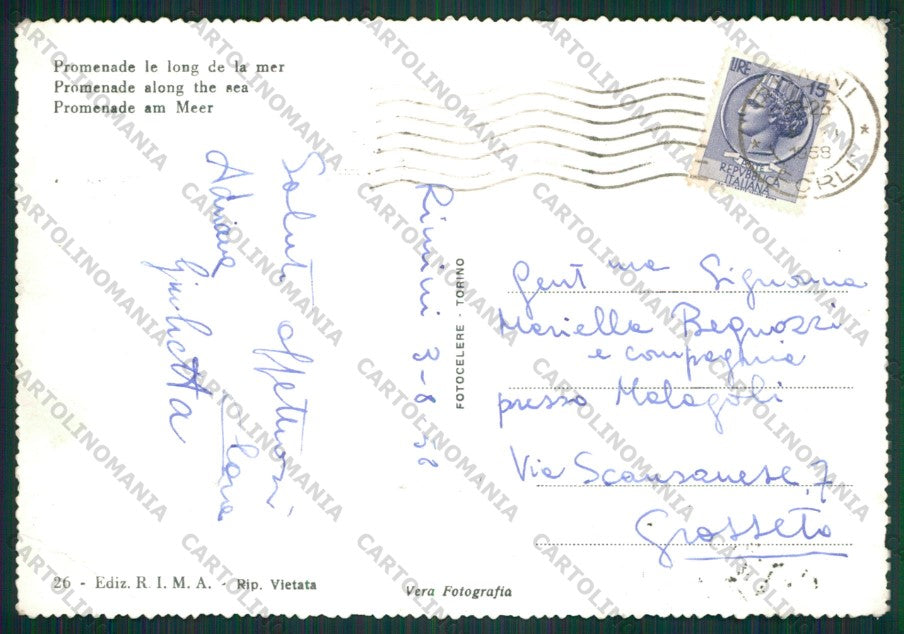 Promenade le long de la mer
Promenade along the sea
Promenade am Meer
LIRE 15
POSTE
REPVBBLICA
ITALIANA
1958
Rimini 3-8-58
Saluti affettuosi
Adriana
Giulietta
FOTOCELERE - TORINO
Gent ma Signorina
Mariella Begnozzi
e compagnia
presso Malagoli
Via Scansanese, 7
Grosseto
26 - Ediz. R. I. M. A. - Rip. Vietata
Vera Fotografia
CARTOLINOMANIA